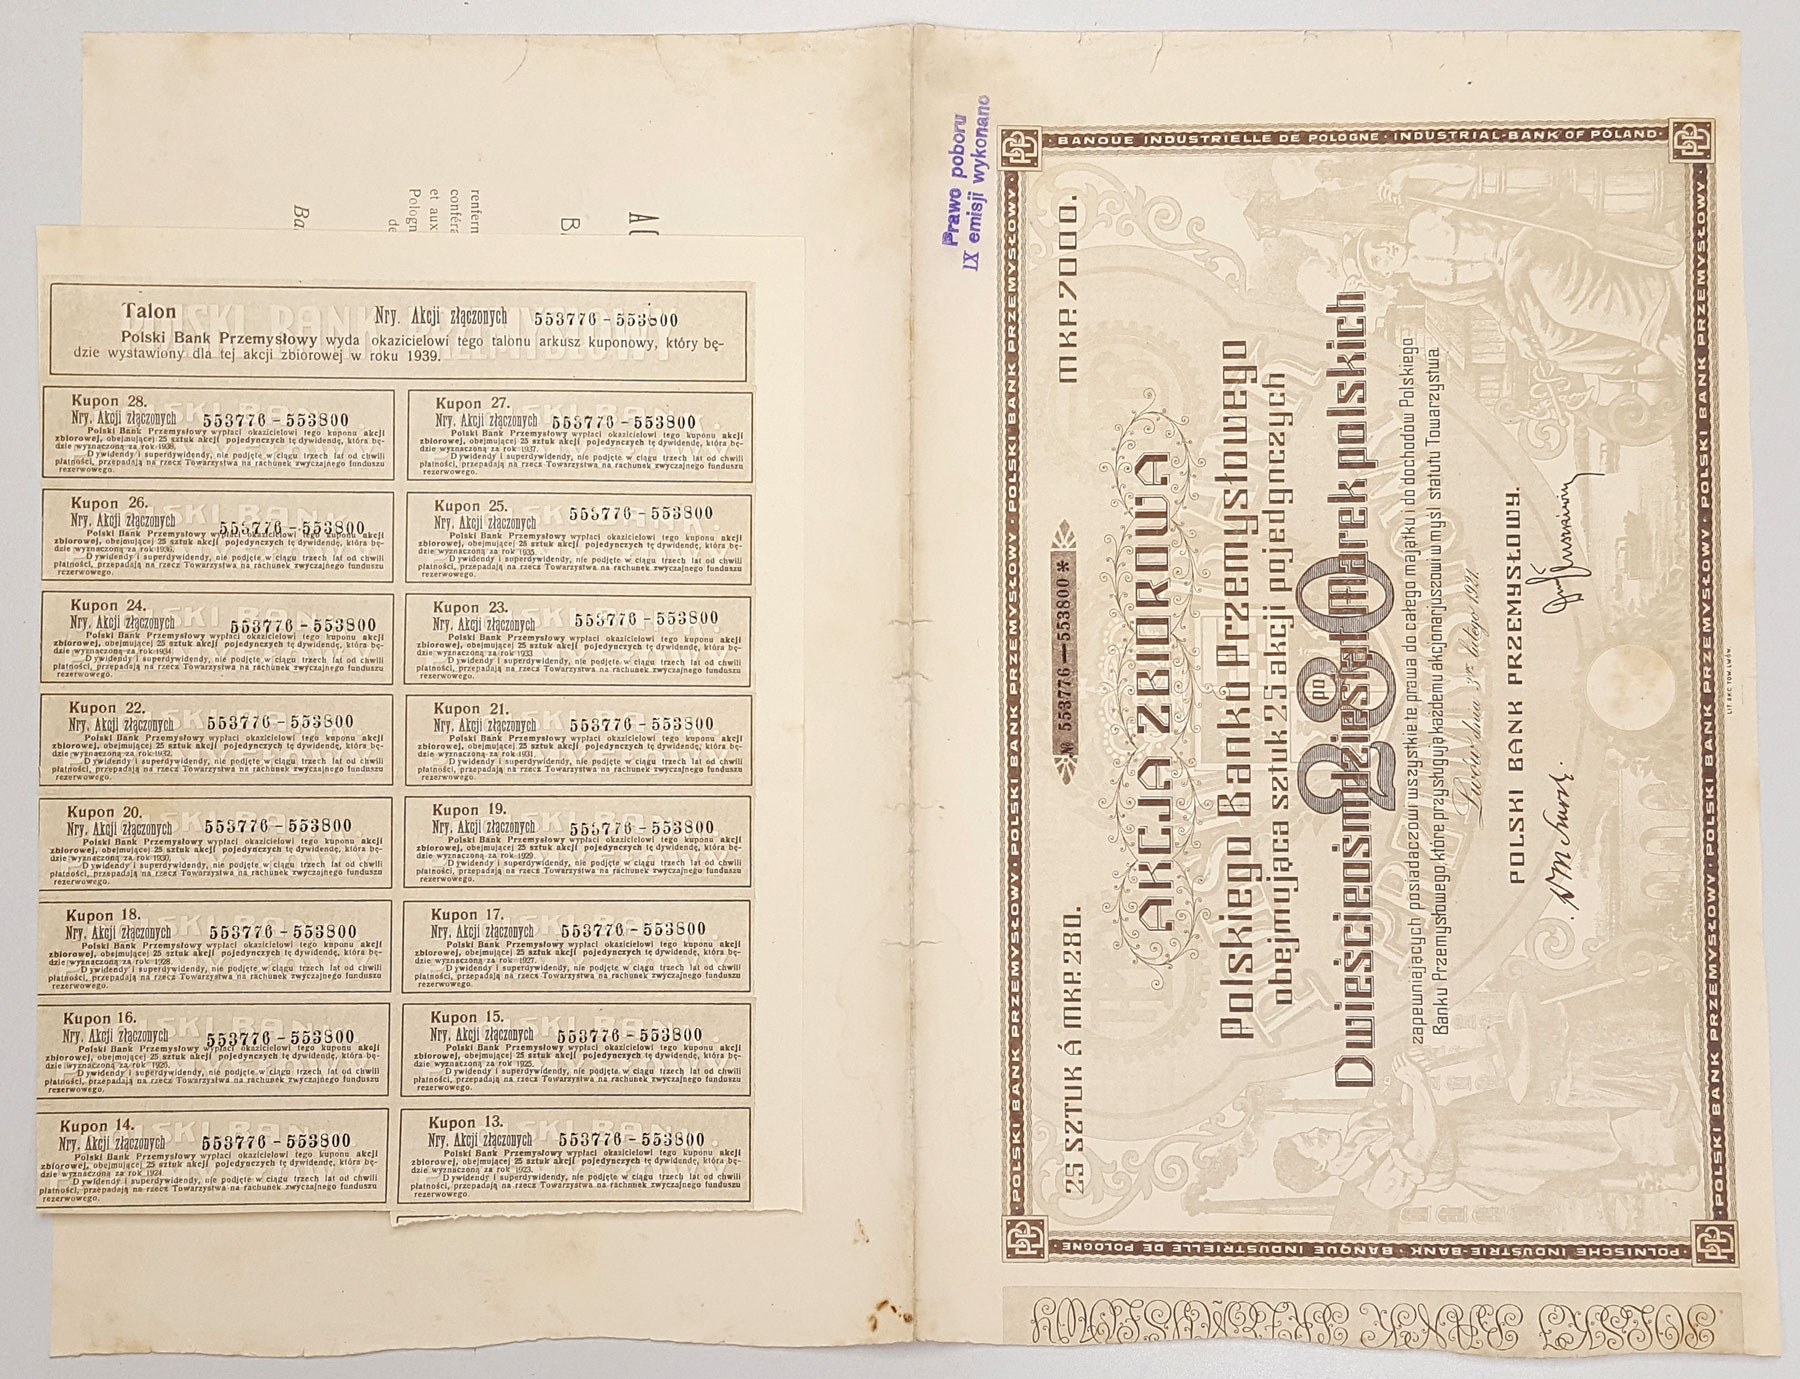 AC
B
renferm
conféra
et aux
Pologn
de
Ba
Talon
Nry. Akcji złączonych 553776-553800
Polski Bank Przemysłowy wyda okazicielowi tego talonu arkusz kuponowy, który bę-
dzie wystawiony dla tej akcji zbiorowej w roku 1939.
Kupon 28.
Nry. Akcji złączonych 553776-553800
Polski Bank Przemysłowy wypłaci okazicielowi tego kuponu akcji
zbiorowej, obejmującej 25 sztuk akcji pojedynczych tę dywidendę, która bę-
dzie wyznaczoną za rok 1938.
Dywidendy i superdywidendy, nie podjęte w ciągu trzech lat od chwili
płatności, przepadają na rzecz Towarzystwa na rachunek zwyczajnego funduszu
rezerwowego.
Kupon 27.
Nry. Akcji złączonych 553776-553800
Polski Bank Przemysłowy wypłaci okazicielowi tego kuponu akcji
zbiorowej, obejmującej 25 sztuk akcji pojedynczych tę dywidendę, która bę-
dzie wyznaczoną za rok 1937.
Dywidendy i superdywidendy, nie podjęte w ciągu trzech lat od chwili
płatności, przepadają na rzecz Towarzystwa na rachunek zwyczajnego funduszu
rezerwowego.
Kupon 26.
Nry. Akcji złączonych 553776-553800
Polski Bank Przemysłowy wypłaci okazicielowi tego kuponu akcji
zbiorowej, obejmującej 25 sztuk akcji pojedynczych tę dywidendę, która bę-
dzie wyznaczoną za rok 1936.
Dywidendy i superdywidendy, nie podjęte w ciągu trzech lat od chwili
płatności, przepadają na rzecz Towarzystwa na rachunek zwyczajnego funduszu
rezerwowego.
Kupon 25.
Nry. Akcji złączonych 553776-553800
Polski Bank Przemysłowy wypłaci okazicielowi tego kuponu akcji
zbiorowej, obejmującej 25 sztuk akcji pojedynczych tę dywidendę, która bę-
dzie wyznaczoną za rok 1935.
Dywidendy i superdywidendy, nie podjęte w ciągu trzech lat od chwili
płatności, przepadają na rzecz Towarzystwa na rachunek zwyczajnego funduszu
rezerwowego.
Kupon 24.
Nry. Akcji złączonych 553776-553800
Polski Bank Przemysłowy wypłaci okazicielowi tego kuponu akcji
zbiorowej, obejmującej 25 sztuk akcji pojedynczych tę dywidendę, która bę-
dzie wyznaczoną za rok 1934.
Dywidendy i superdywidendy, nie podjęte w ciągu trzech lat od chwili
płatności, przepadają na rzecz Towarzystwa na rachunek zwyczajnego funduszu
rezerwowego.
Kupon 23.
Nry. Akcji złączonych 553776-553800
Polski Bank Przemysłowy wypłaci okazicielowi tego kuponu akcji
zbiorowej, obejmującej 25 sztuk akcji pojedynczych tę dywidendę, która bę-
dzie wyznaczoną za rok 1933
Dywidendy i superdywidendy, nie podjęte w ciągu trzech lat od chwili
płatności, przepadają na rzecz Towarzystwa na rachunek zwyczajnego funduszu
rezerwowego.
Kupon 22.
Nry. Akcji złączonych 553776-553800
Polski Bank Przemysłowy wypłaci okazicielowi tego kuponu akcji
zbiorowej, obejmującej 25 sztuk akcji pojedynczych tę dywidendę, która bę-
dzie wyznaczoną za rok 1932.
Dywidendy i superdywidendy, nie podjęte w ciągu trzech lat od chwili
płatności, przepadają na rzecz Towarzystwa na rachunek zwyczajnego funduszu
rezerwowego.
Kupon 21.
Nry. Akcji złączonych 553776-553800
Polski Bank Przemysłowy wypłaci okazicielowi tego kuponu akcji
zbiorowej, obejmującej 25 sztuk akcji pojedynczych tę dywidendę, która bę-
dzie wyznaczoną za rok 1931
Dywidendy i superdywidendy, nie podjęte w ciągu trzech lat od chwili
płatności, przepadają na rzecz Towarzystwa na rachunek zwyczajnego funduszu
rezerwowego.
Kupon 20.
Nry. Akcji złączonych 553776-553800
Polski Bank Przemysłowy wypłaci okazicielowi tego kuponu akcji
zbiorowej, obejmującej 25 sztuk akcji pojedynczych tę dywidendę, która bę-
dzie wyznaczoną za rok 1930.
Dywidendy i superdywidendy, nie podjęte w ciągu trzech lat od chwili
płatności, przepadają na rzecz Towarzystwa na rachunek zwyczajnego funduszu
rezerwowego.
Kupon 19.
Nry. Akcji złączonych 553776-553800
Polski Bank Przemysłowy wypłaci okazicielowi tego kuponu akcji
zbiorowej, obejmującej 25 sztuk akcji pojedynczych tę dywidendę, która bę-
dzie wyznaczoną za rok 1929.
Dywidendy i superdywidendy, nie podjęte w ciągu trzech lat od chwili
płatności, przepadają na rzecz Towarzystwa na rachunek zwyczajnego funduszu
rezerwowego.
Kupon 18.
Nry. Akcji złączonych 553776-553800
Polski Bank Przemysłowy wypłaci okazicielowi tego kuponu akcji
zbiorowej, obejmującej 25 sztuk akcji pojedynczych tę dywidendę, która bę-
dzie wyznaczoną za rok 1928.
Dywidendy i superdywidendy, nie podjęte w ciągu trzech lat od chwili
płatności, przepadają na rzecz Towarzystwa na rachunek zwyczajnego funduszu
rezerwowego.
Kupon 17.
Nry. Akcji złączonych 553776-553800
Polski Bank Przemysłowy wypłaci okazicielowi tego kuponu akcji
zbiorowej, obejmującej 25 sztuk akcji pojedynczych tę dywidendę, która bę-
dzie wyznaczoną za rok 1927.
Dywidendy i superdywidendy, nie podjęte w ciągu trzech lat od chwili
płatności, przepadają na rzecz Towarzystwa na rachunek zwyczajnego funduszu
rezerwowego.
Kupon 16.
Nry. Akcji złączonych 553776-553800
Polski Bank Przemysłowy wypłaci okazicielowi tego kuponu akcji
zbiorowej, obejmującej 25 sztuk akcji pojedynczych tę dywidendę, która bę-
dzie wyznaczoną za rok 1926.
Dywidendy i superdywidendy, nie podjęte w ciągu trzech lat od chwili
płatności, przepadają na rzecz Towarzystwa na rachunek zwyczajnego funduszu
rezerwowego.
Kupon 15.
Nry. Akcji złączonych 553776-553800
Polski Bank Przemysłowy wypłaci okazicielowi tego kuponu akcji
zbiorowej, obejmującej 25 sztuk akcji pojedynczych tę dywidendę, która bę-
dzie wyznaczoną za rok 1925.
Dywidendy i superdywidendy, nie podjęte w ciągu trzech lat od chwili
płatności, przepadają na rzecz Towarzystwa na rachunek zwyczajnego funduszu
rezerwowego.
Kupon 14.
Nry. Akcji złączonych 553776-553800
Polski Bank Przemysłowy wypłaci okazicielowi tego kuponu akcji
zbiorowej, obejmującej 25 sztuk akcji pojedynczych tę dywidendę, która bę-
dzie wyznaczoną za rok 1924.
Dywidendy i superdywidendy, nie podjęte w ciągu trzech lat od chwili
płatności, przepadają na rzecz Towarzystwa na rachunek zwyczajnego funduszu
rezerwowego.
Kupon 13.
Nry. Akcji złączonych 553776-553800
Polski Bank Przemysłowy wypłaci okazicielowi tego kuponu akcji
zbiorowej, obejmującej 25 sztuk akcji pojedynczych tę dywidendę, która bę-
dzie wyznaczoną za rok 1923.
Dywidendy i superdywidendy, nie podjęte w ciągu trzech lat od chwili
płatności, przepadają na rzecz Towarzystwa na rachunek zwyczajnego funduszu
rezerwowego.
Prawo poboru
IX emisji wykonano
POLSKI BANK PRZEMYSŁOWY · POLSKI BANK PRZEMYSŁOWY · POLSKI BANK PRZEMYSŁOWY · POLSKI BANK PRZEMYSŁOWY
BANQUE INDUSTRIELLE DE POLOGNE · INDUSTRIAL-BANK OF POLAND
POLNISCHE INDUSTRIE-BANK · BANQUE INDUSTRIELLE DE POLOGNE
25 SZTUK Á MKP. 280.
№ 553776—553800 *
MKP. 7000.
AKCJA ZBIOROWA
Polskiego Banku Przemysłowego
obejmująca sztuk 25 akcji pojedynczych
po
280
Dwieścieośmdziesiąt marek polskich
zapewniających posiadaczowi wszystkie te prawa do całego majątku i do dochodów Polskiego
Banku Przemysłowego, które przysługują każdemu akcjonarjuszowi w myśl statutu Towarzystwa.
Lwów dnia 3go lutego 1921.
POLSKI BANK PRZEMYSŁOWY.
POLSKI BANK PRZEMYSŁOWY · POLSKI BANK PRZEMYSŁOWY · POLSKI BANK PRZEMYSŁOWY · POLSKI BANK PRZEMYSŁOWY
LIT. AKC. TOW. LWÓW.
POLSKI BANK PRZEMYSŁOWY